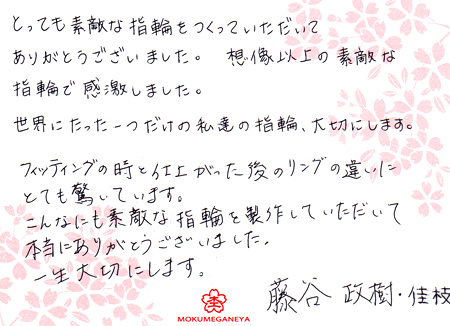 とっても素敵な指輪をつくっていただいて
ありがとうございました。 想像以上の素敵な
指輪で感激しました。
世界にたった一つだけの私達の指輪、大切にします。
フィッティングの時と仕上がった後のリングの違いに
とても驚いています。
こんなにも素敵な指輪を製作していただいて
本当にありがとうございました。
一生大切にします。
藤谷 政樹・佳枝
MOKUMEGANEYA